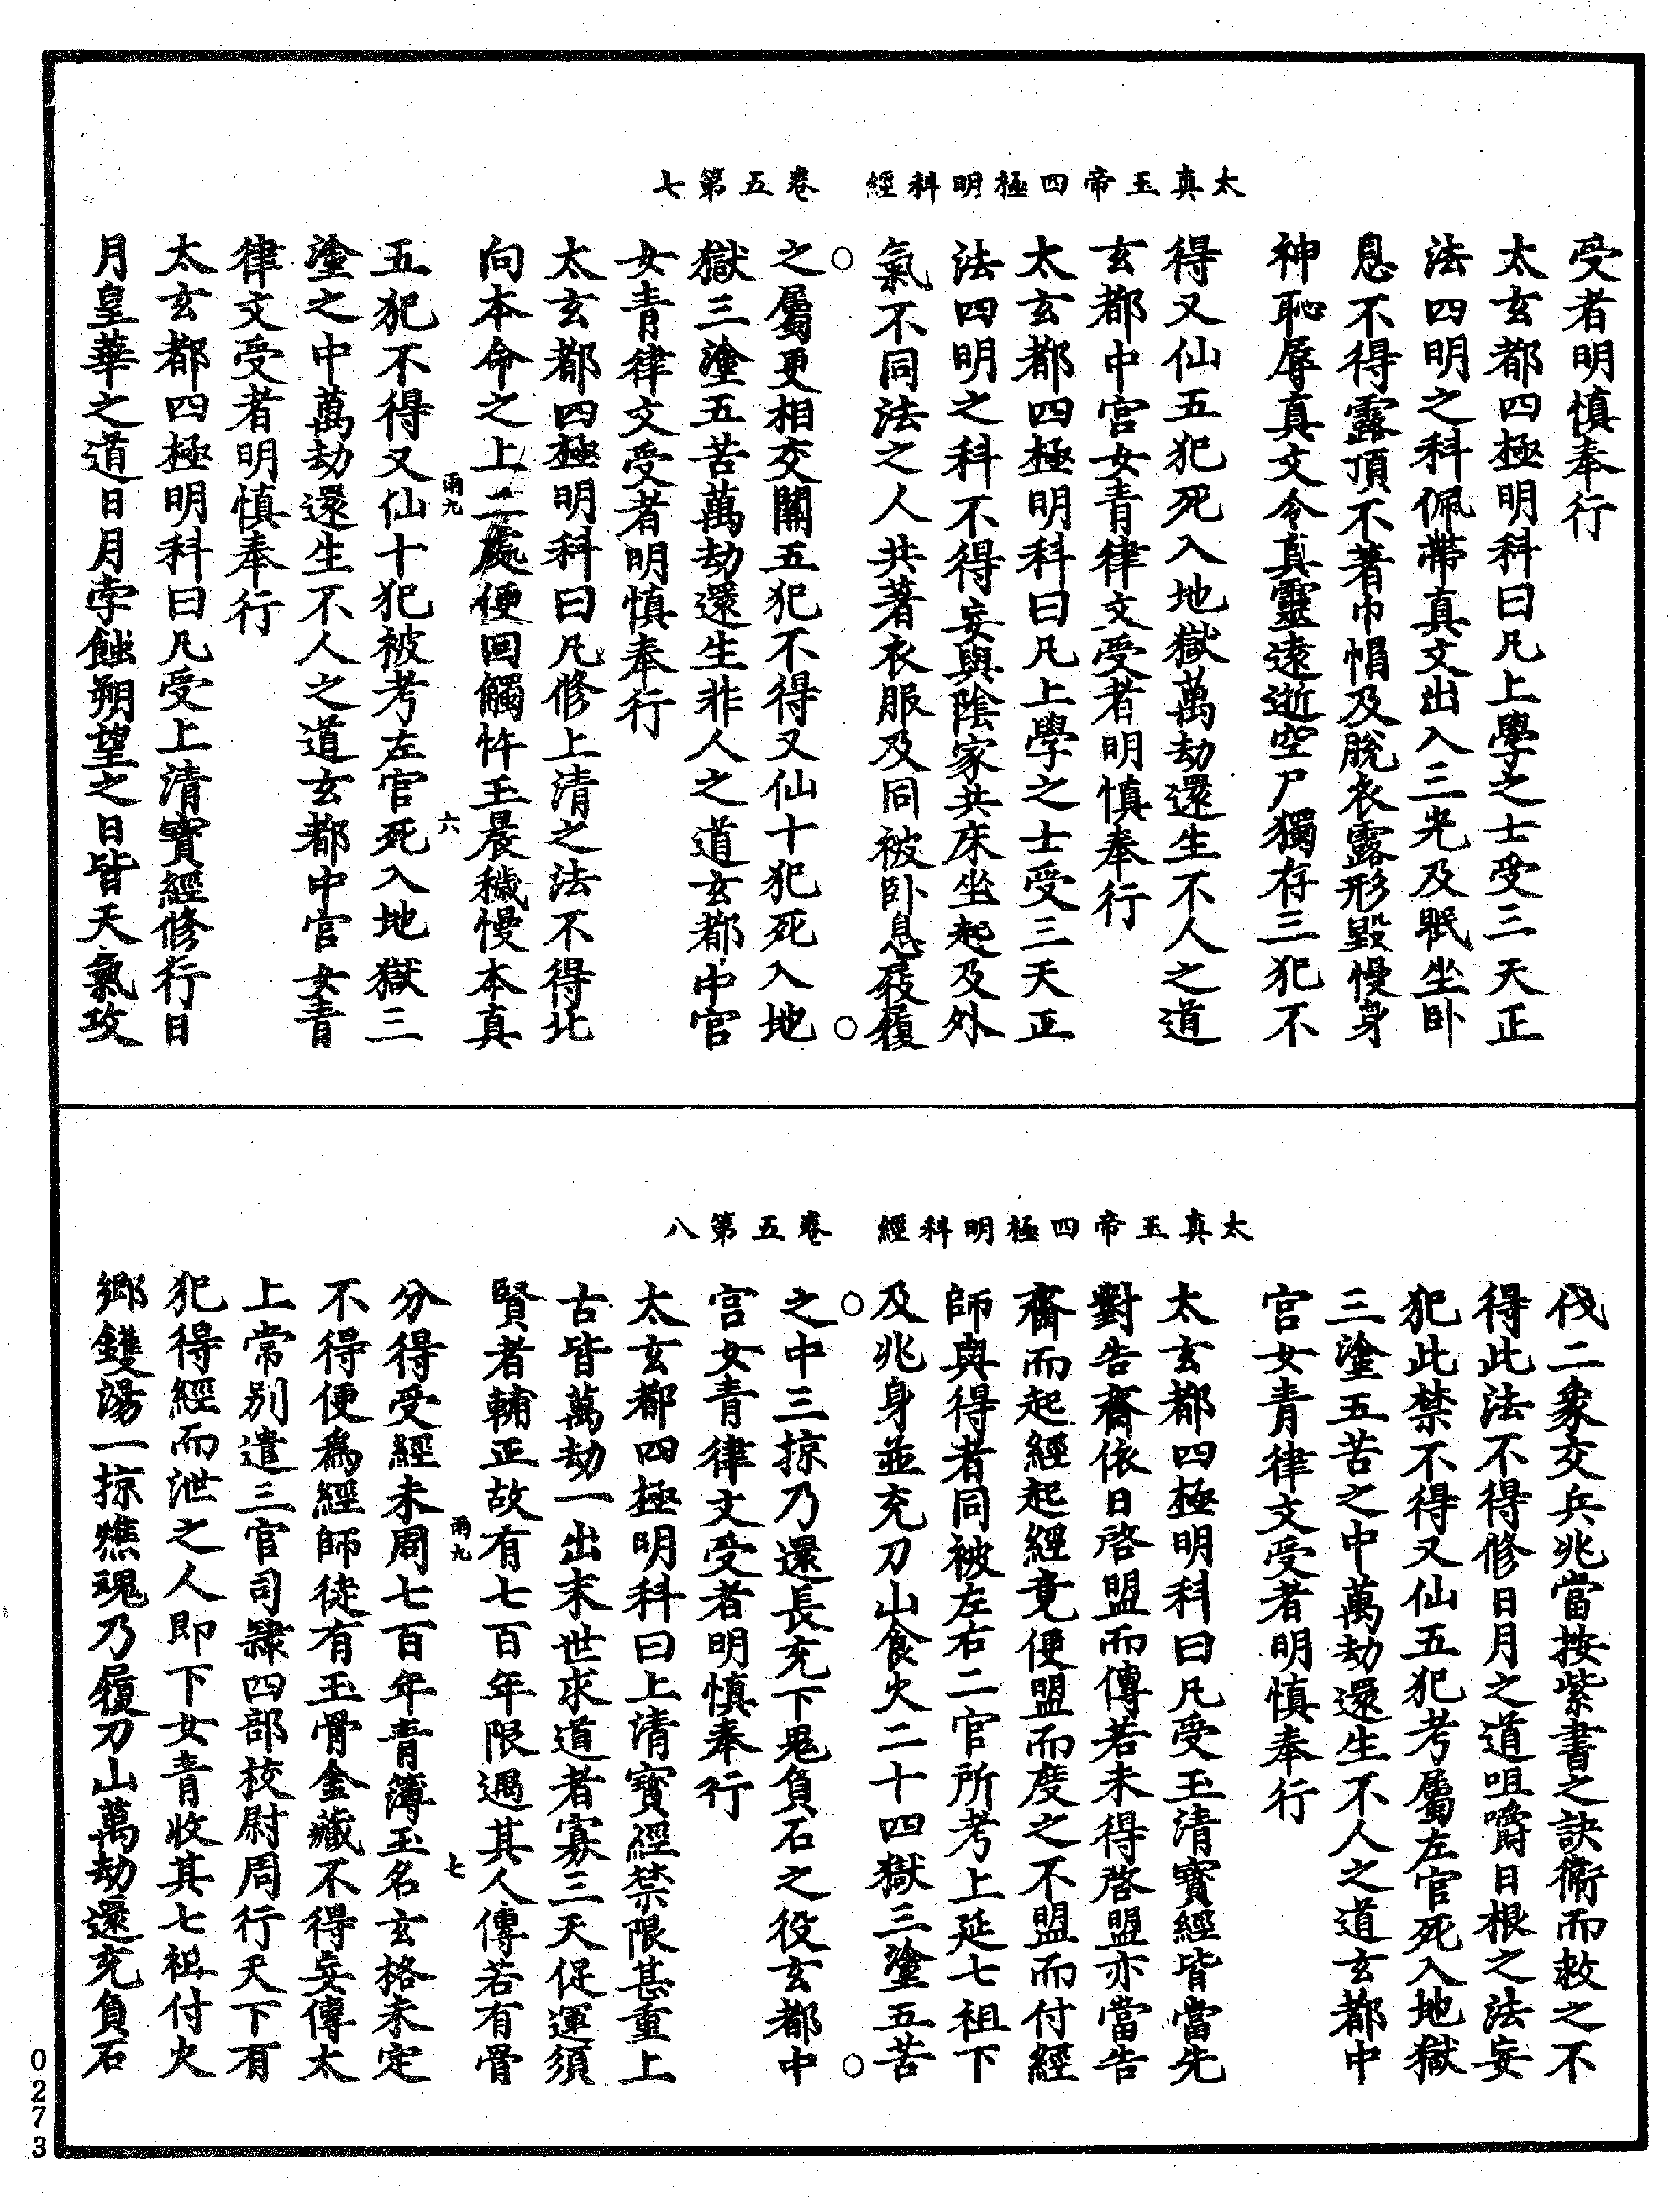 太真玉帝四極明科經　卷五第七
受者明慎奉行
太玄都四極明科曰凡上學之士受三天正
法四明之科佩帶真文出入三光及眠坐卧
息不得露頂不著巾帽及脫衣露形毀慢身
神恥辱真文令真靈遠逝空尸獨存三犯不
得又仙五犯死入地獄萬劫還生不人之道
玄都中宫女青律文受者明慎奉行
太玄都四極明科曰凡上學之士受三天正
法四明之科不得妄與陰家共床坐起及外
氣不同法之人共著衣服及同被卧息屐履
之屬更相交關五犯不得又仙十犯死入地
獄三塗五苦萬劫還生非人之道玄都中官
女青律文受者明慎奉行
太玄都四極明科曰凡修上清之法不得北
向本命之上二處便回觸忤玉晨穢慢本真
雨九　六
五犯不得又仙十犯被考左官死入地獄三
塗之中萬劫還生不人之道玄都中宫女青
律文受者明慎奉行
太玄都四極明科曰凡受上清寳經修行日
月皇華之道日月孛蝕朔望之日皆天氣攻
太真玉帝四極明科經　卷五第八
伐二象交兵兆當按紫書之訣衛而救之不
得此法不得修日月之道咀嚼日根之法妄
犯此禁不得又仙五犯考屬左官死入地獄
三塗五苦之中萬劫還生不人之道玄都中
宫女青律文受者明慎奉行
太玄都四極明科曰凡受玉清寳經皆當先
對告齋依日啓盟而傳若未得啓盟亦當告
齋而起經起經竟便盟而度之不盟而付經
師與得者同被左右二官所考上延七祖下
及兆身並充刀山食火二十四獄三塗五苦
之中三掠乃還長充下鬼負石之役玄都中
宫女青律文受者明慎奉行
太玄都四極明科曰上清寳經禁限甚重上
古皆萬劫一出末世求道者寡三天促運須
賢者輔正故有七百年限遇其人傳若有骨
雨九　七
分得受經未周七百年青簿玉名玄格未定
不得便爲經師徒有玉骨金藏不得妄傳太
上常别遣三官司隸四部校尉周行天下有
犯得經而泄之人即下女青收其七祖付火
鄉鑊湯一掠燋魂乃履刀山萬劫還充負石
0273